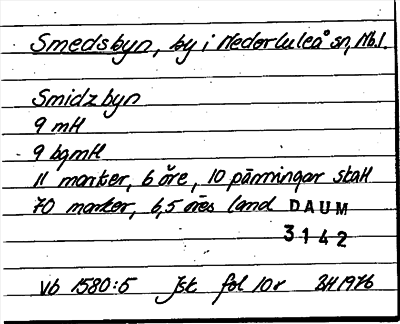 Smedsbyn, by i Nederluleå sn, Nb.l.
Smidzbyn
9 mH
9 bgmH
11 marker, 6 öre, 10 pänningar skatt
70 marker, 6,5 öres land DAUM
3142
Vb 1580:5 Jsk fol 10r BH 1976